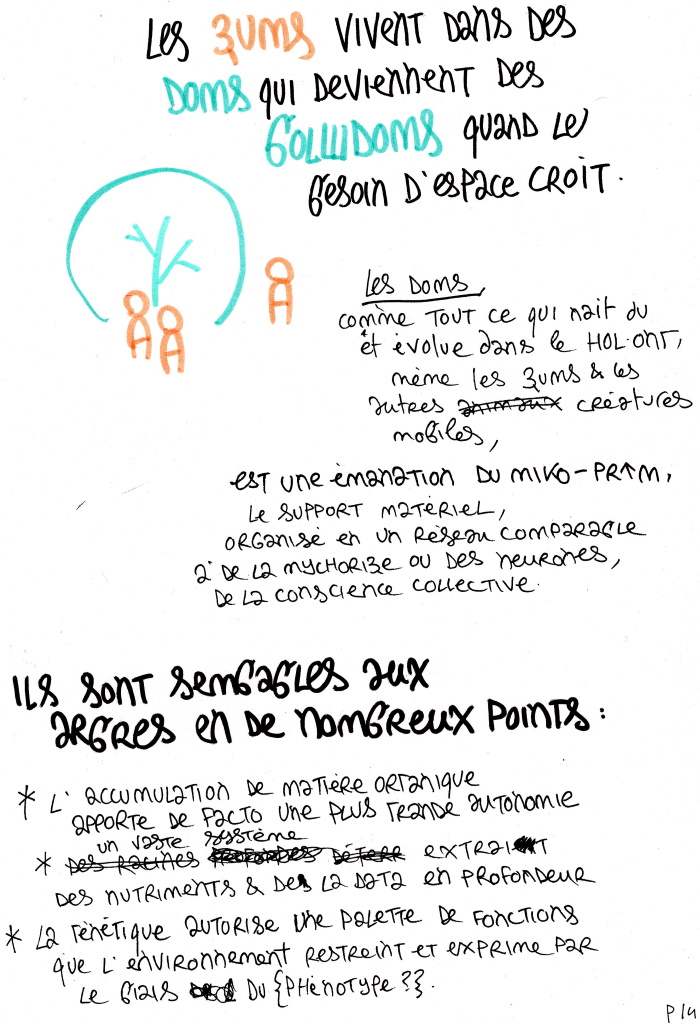 Les ZUMS vivent dans des
DOMS qui deviennent des
BOLIIDOMS quand le
besoin d'espace croit.
Les Doms,
comme tout ce qui nait du
et évolue dans le HOL·ONT,
même les ZUMS & les
autres animaux créatures
mobiles,
est une émanation du MIKO-PR↑M,
le support matériel,
organisé en un réseau comparable
à de la mychorize ou des neurones,
de la conscience collective.
Ils sont semblables aux
arbres en de nombreux points :
* L'accumulation de matière organique
apporte de facto une plus grande autonomie
un vaste système
* Des racines profondes extrait
des nutriments & de la data en profondeur
* La génétique autorise une palette de fonctions
que l'environnement restreint et exprime par
le biais du {phénotype ??}.
P14